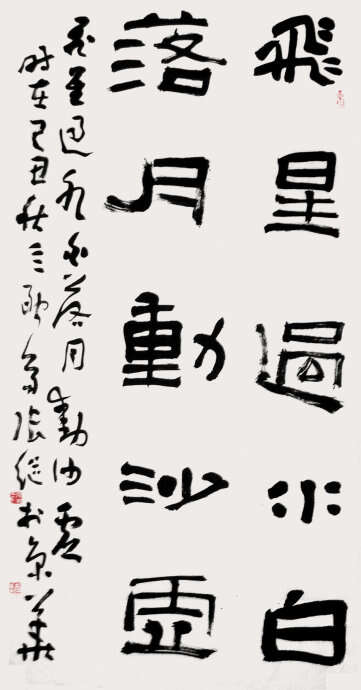 飛星過水白
落月動沙虛
飛星過水白落月動沙虛
時在己丑秋張継於京華